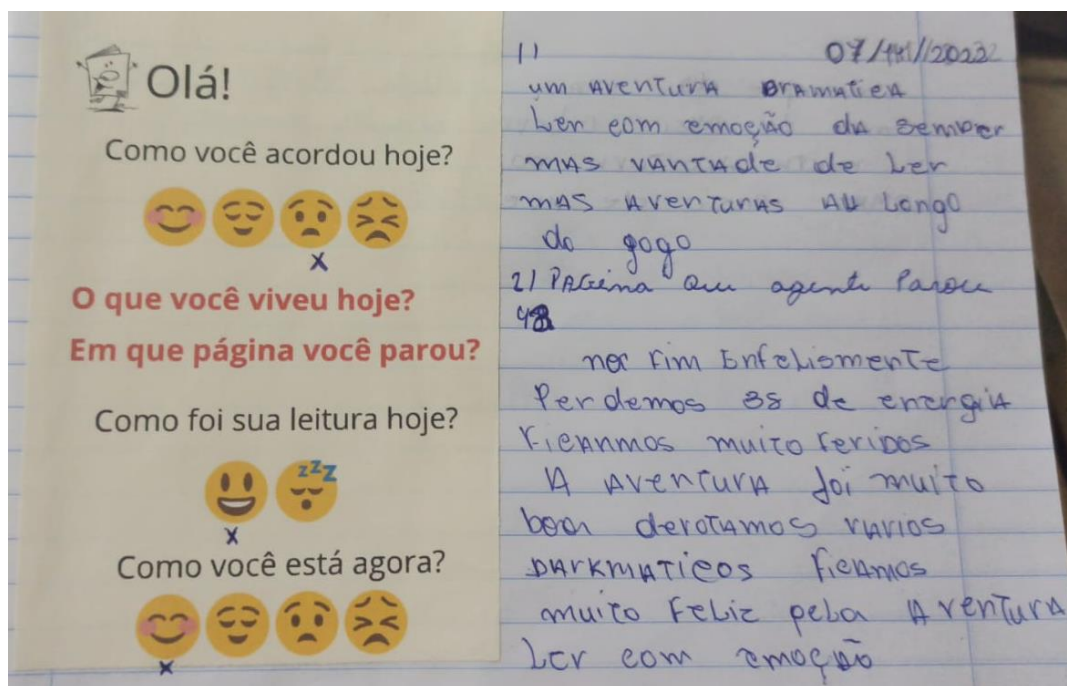 Olá!
Como você acordou hoje?
x
O que você viveu hoje?
Em que página você parou?
Como foi sua leitura hoje?
zzz
x
Como você está agora?
x
1)
um AvenTurA DrAmaticA
Ler com emoção dA sempер
mAS VANTAde de Ler
mAS AvenTurAS AU Longo
do gogo
2) PAGina Que agente Parou
48
nor Fim Enfelismente
Perdemos 38 de energiA
FicAnmos muiTo FeriDos
A AvenTurA foi muiTo
booa deroTAmos vArios
DArkmATicos FicAmos
muiTo FeLiz peLa AvenTurA
Ler com emoção